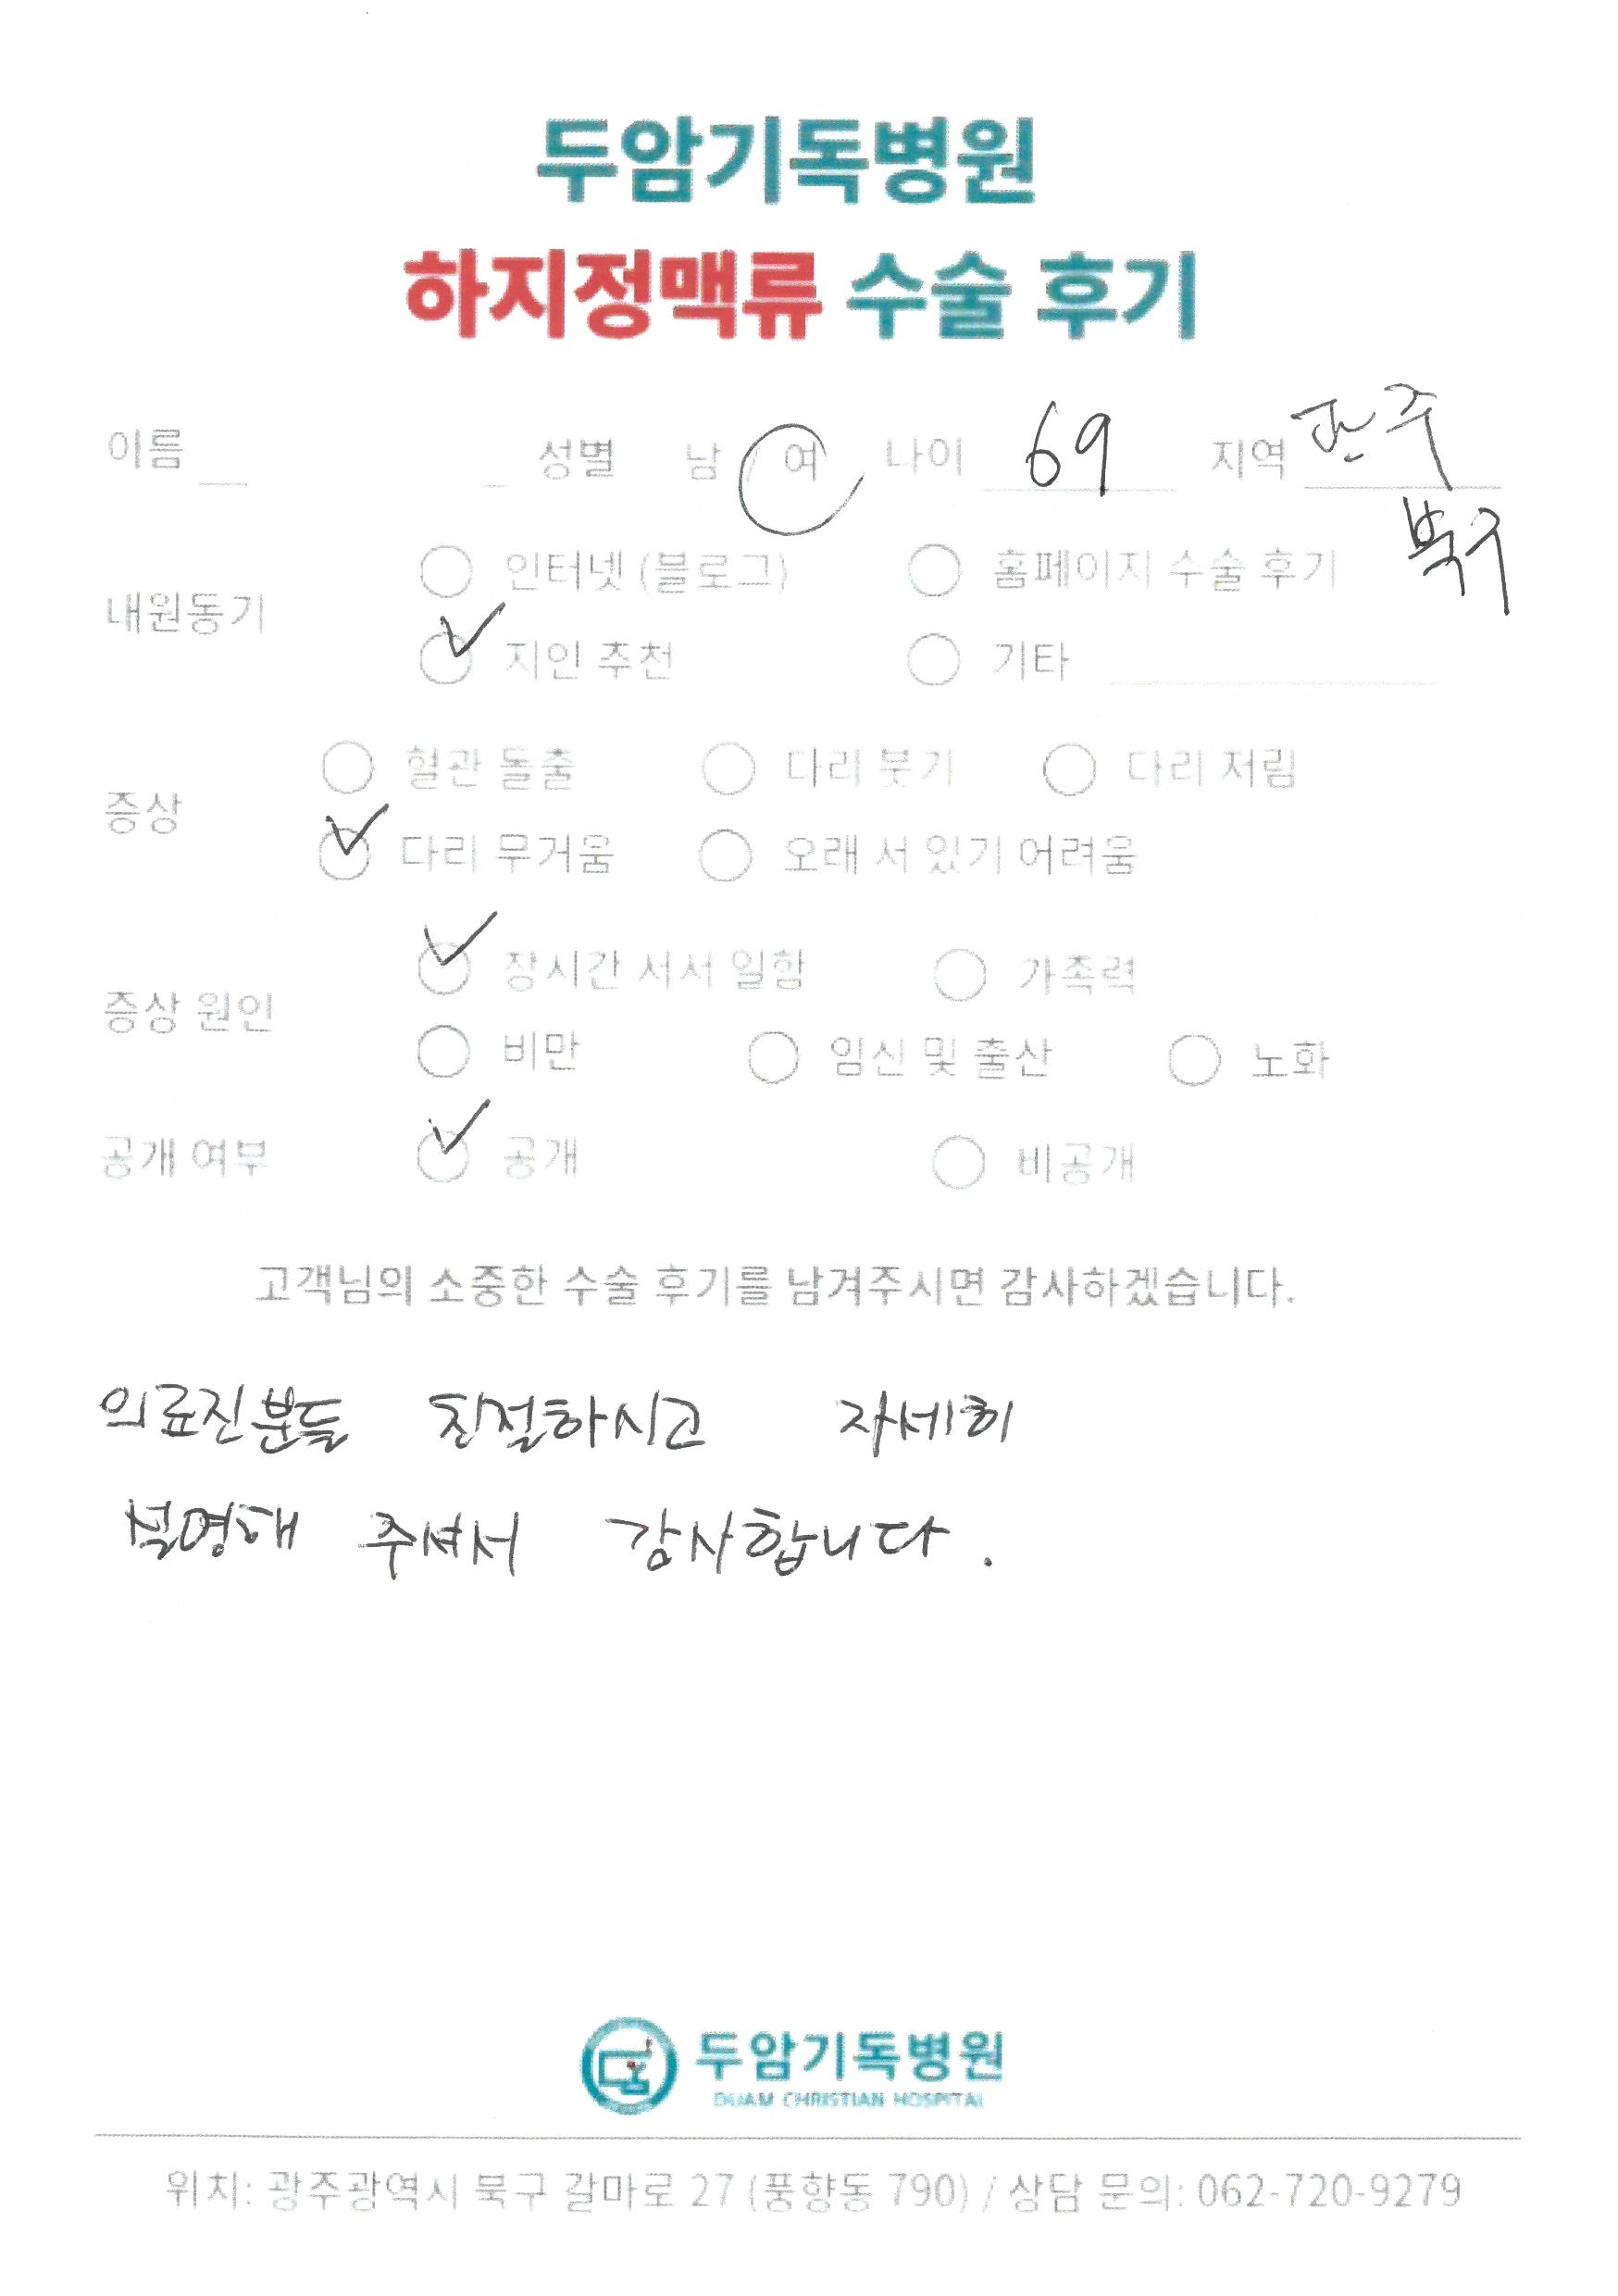 두암기독병원
하지정맥류 수술 후기
이름 성별 남 / 여 나이 69 지역 광주
북구
내원동기
인터넷 (블로그) 홈페이지 수술 후기
지인 추천 기타
증상
혈관 돌출 다리 붓기 다리 저림
다리 무거움 오래 서 있기 어려움
증상 원인
장시간 서서 일함 가족력
비만 임신 및 출산 노화
공개 여부 공개 비공개
고객님의 소중한 수술 후기를 남겨주시면 감사하겠습니다.
의료진분들 친절하시고 자세히
설명해 주셔서 감사합니다.
두암기독병원
DUAM CHRISTIAN HOSPITAL
위치: 광주광역시 북구 갈마로 27 (풍향동 790) / 상담 문의: 062-720-9279